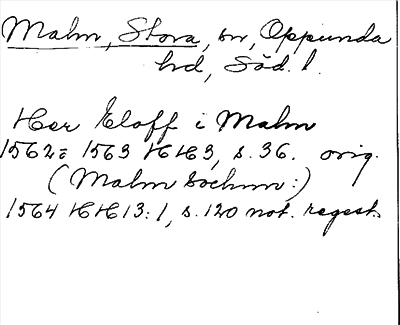 Malm, Stora, sn, Oppunda
hd, Söd. l.
Her Eloff i Malm
1562 = 1563 HH 3, s. 36. orig.
(Malm Sochnn:)
1564 HH 13:1, s. 120 not. regest.